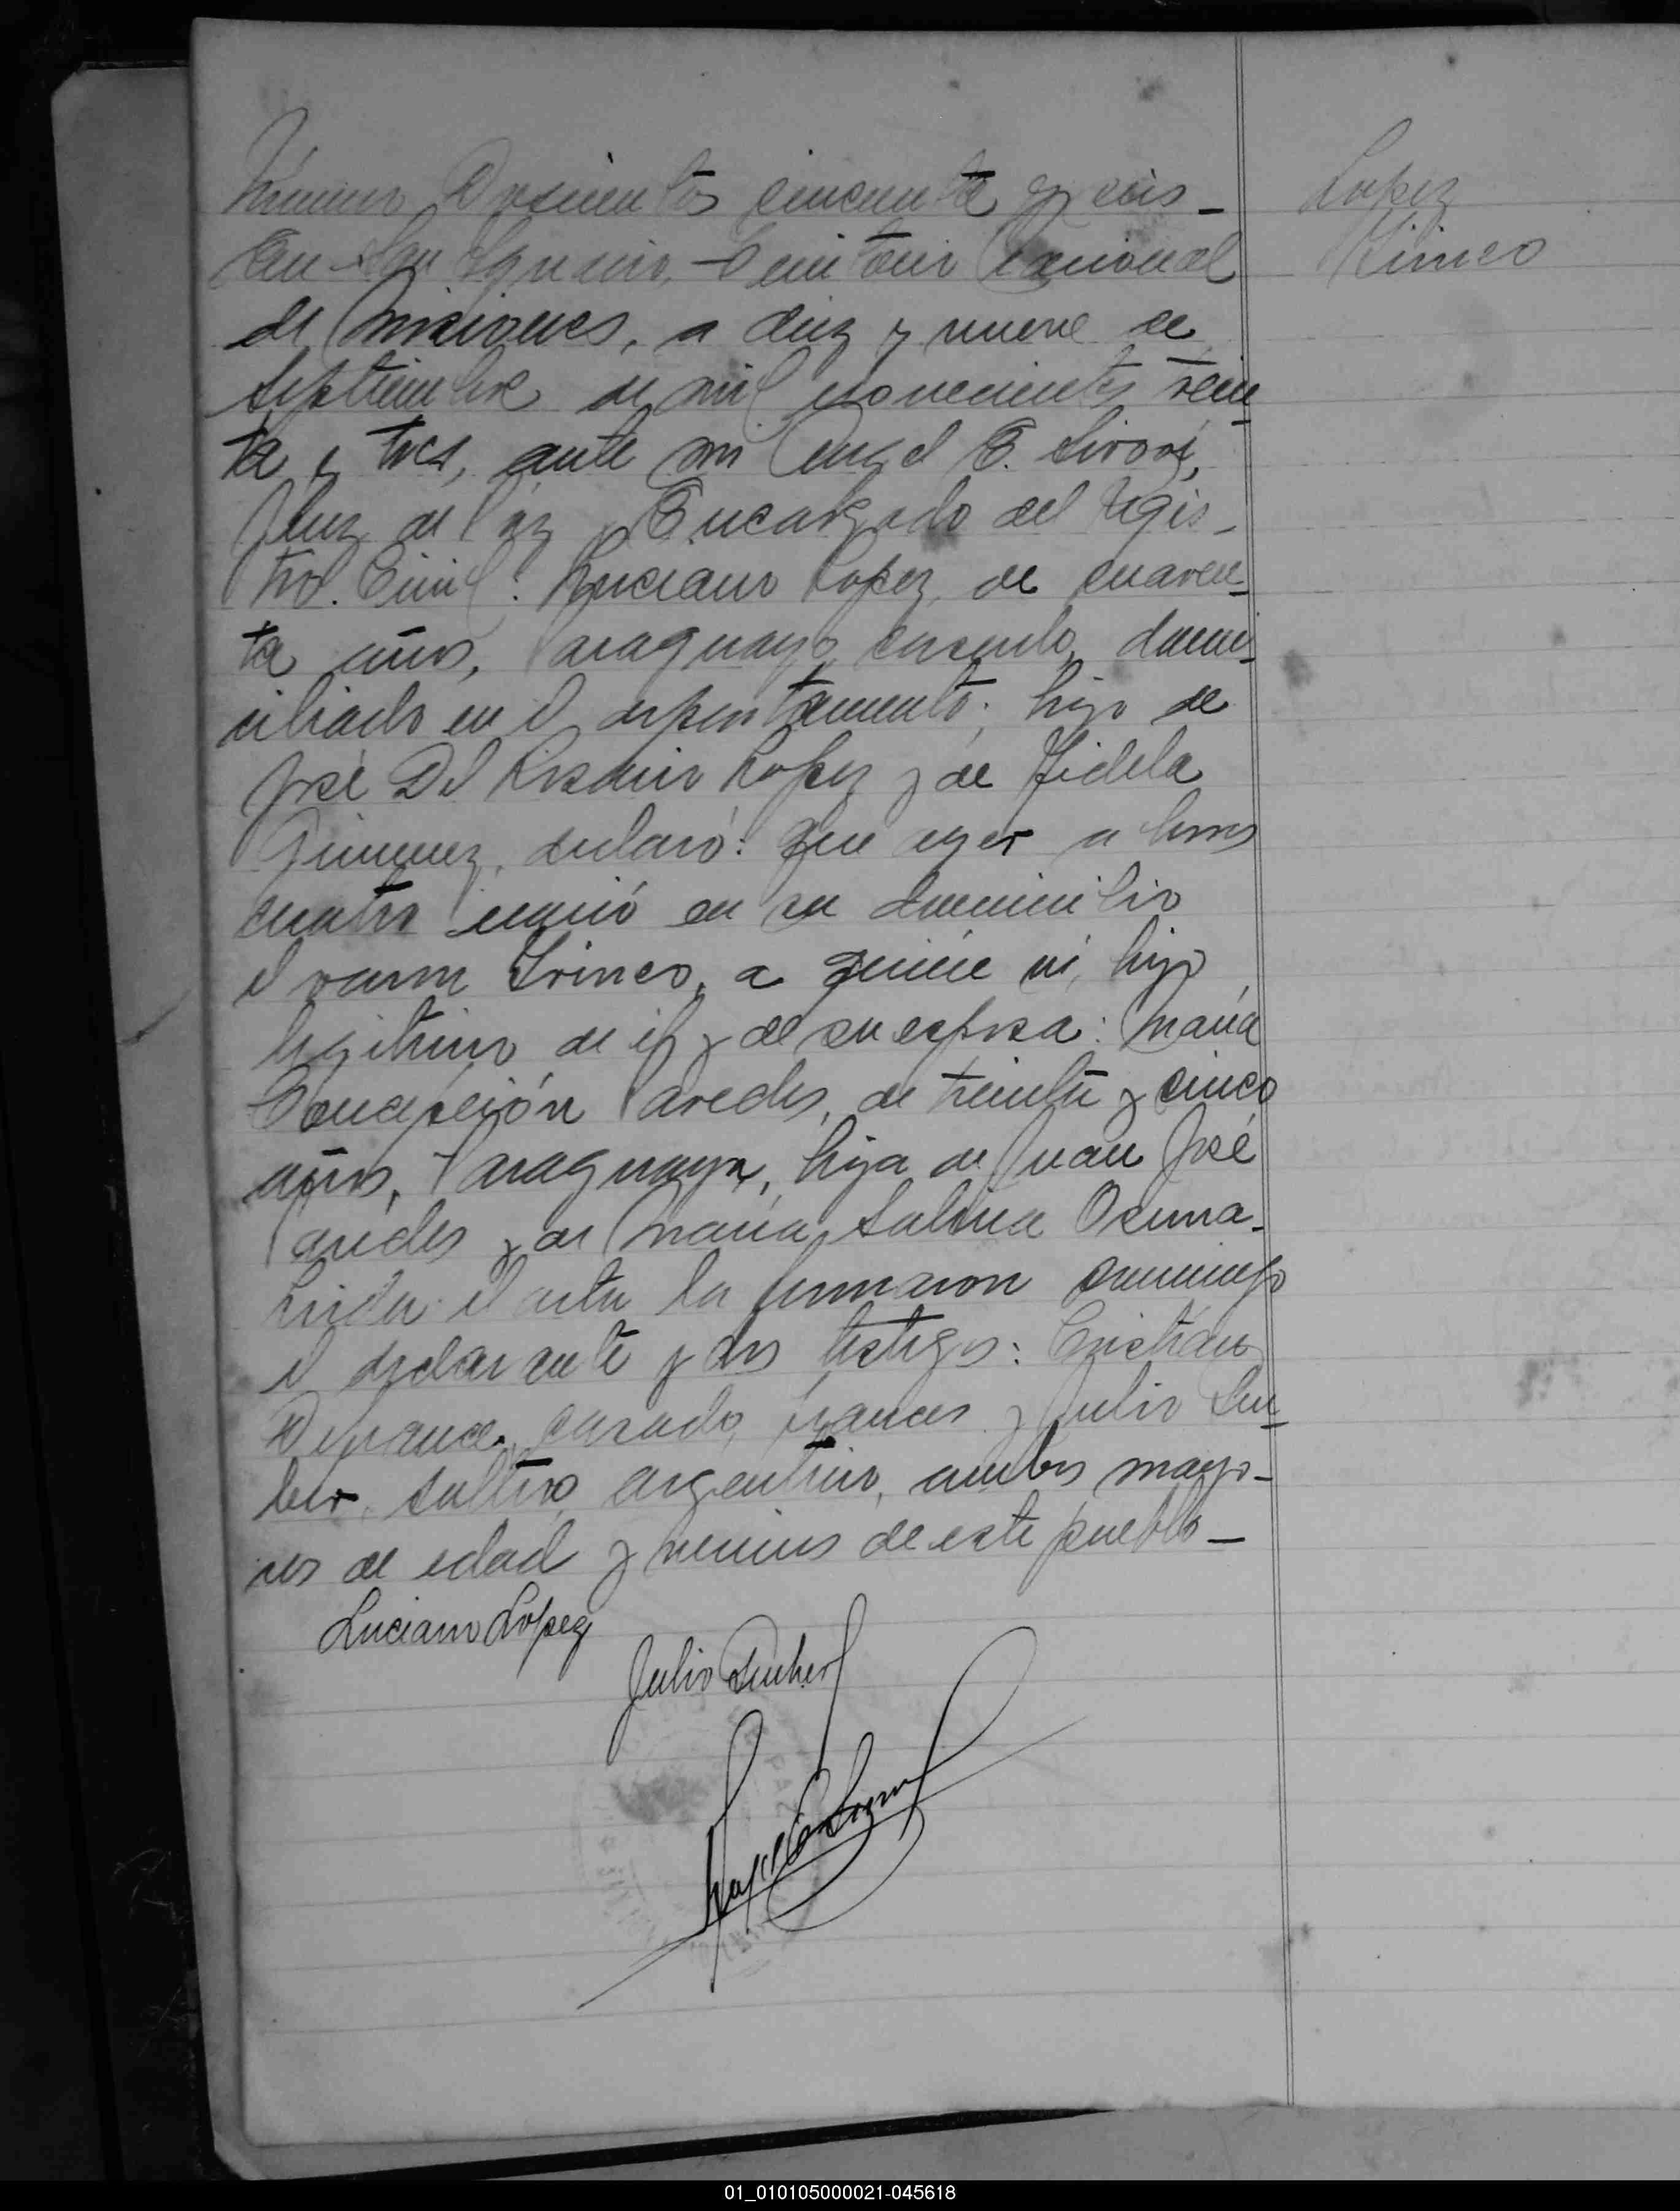 Número Doscientos cincuenta y seis -
Lopez
En San Ignacio, Territorio Nacional
Irineo
de Misiones, a diez y nueve de
septiembre de mil novecientos trein
ta y tres, ante mi Angel E.
Juez de Paz y Encargado del Regis-
tro. Civil: Luciano Lopez, de cuaren-
ta años, Paraguayo, casado, domi-
ciliado en el departamento; hijo de
José Del Rosario Lopez y de Fidela
Gimenez, declaró: Que ayer a horas
cuatro nació en su domicilio
el varon Irineo, a quien vi, hijo
legitimo de él y de su esposa: María
Concepción Paredes, de treinta y cinco
años, Paraguaya, hija de Juan José
Paredes y de María Osuna.
Leida el acta la firmaron conmigo
el declarante y los testigos: Cristian
Defrance, casado, frances y Julio
soltero, argentino, ambos mayo-
res de edad y vecinos de este pueblo -
Luciano Lopez
Julio
01_010105000021-045618